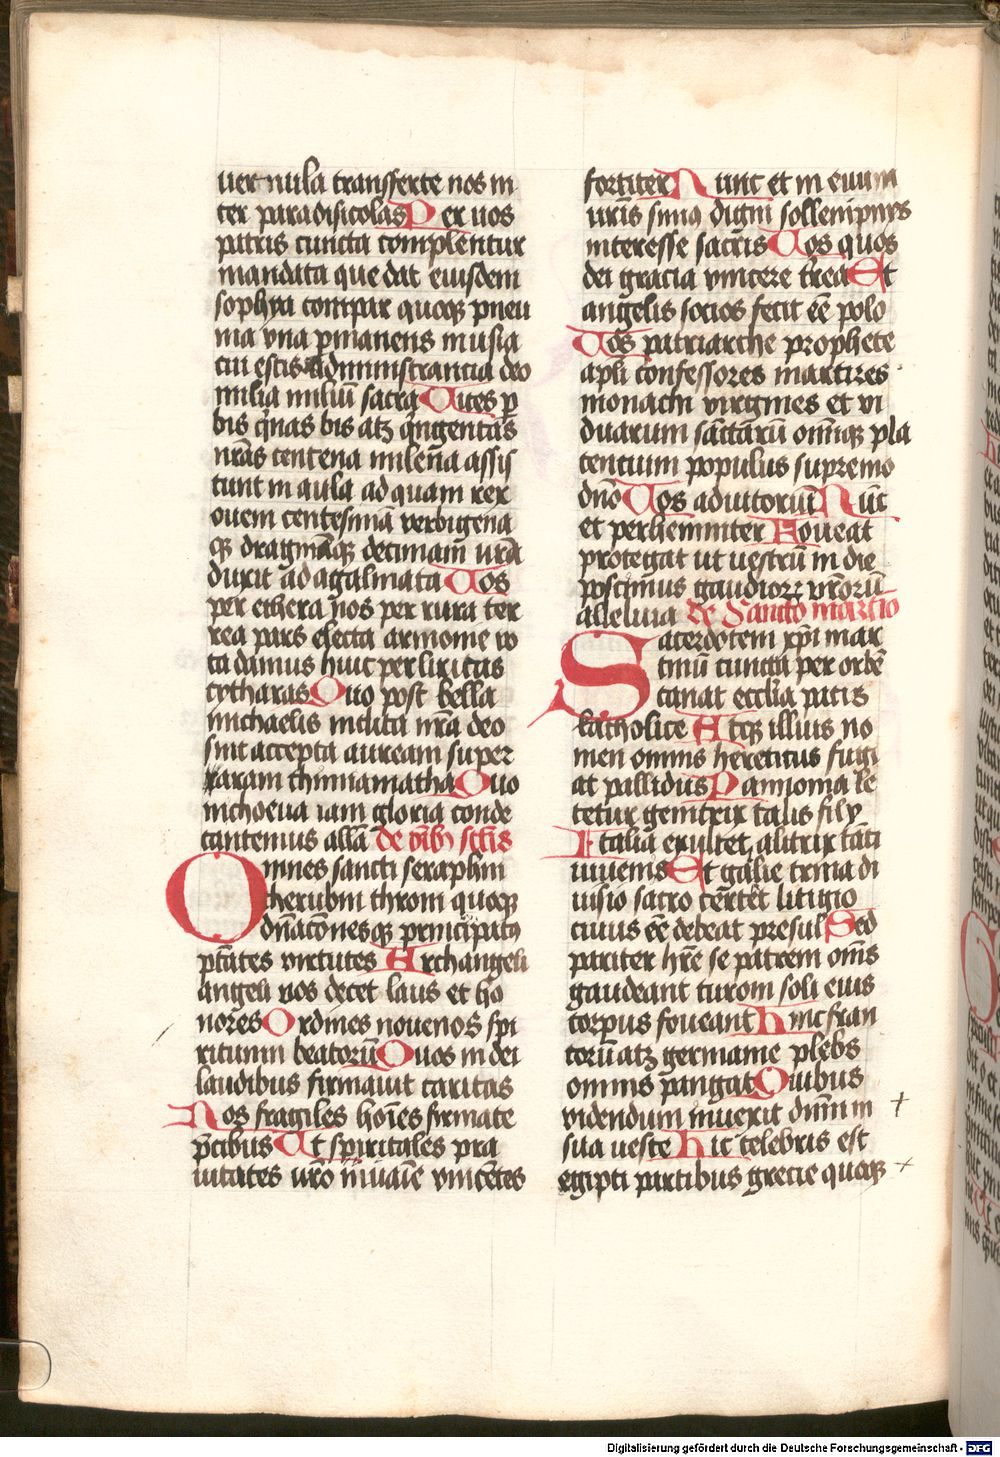 uer nula transferte nos in
ter paradisicolas Per uos
patris cuncta complentur
mandata que dat eiusdem
sophya compar quoqꝫ pneu
ma vna ꝑmanens in usia
cui estis Adminstrancia deo
milia miliũ sacra Uices ꝑ
bis q̃nas bis atꝫ q̃ngentas
nr̃as centena milen̄a assis
tunt in aula ad quam rex
ouem centesimã verbigena
qꝫ dragmãqꝫ decimam̃ vr̃a
duxit ad agalmata Uos
per ethera nos per rura ter
rea pars electa armonie vo
ta damus huic per liricas
cytharas Quo post bella
michaelis incluta nr̃a deo
sint accepta auream super
raram thimiamatha Quo
incoeua iam gloria conde
cantemus allã de oĩbꝫ sctĩs
Omnes sancti seraphin
cherubin throni quoqꝫ
dñacõnesqꝫ principatꝯ
ptãtes virtutes Archangeli
angeli vos decet laus et ho
nores Ordines nouenos spi
rituum beatorũ Quos in dei
laudibus firmauit caritas
Nos fragiles hoĩes firmate
p̃cibus Ut spiritales pra
uitates vr̃o iuuaĩe vincẽtes
fortiter Nunc et in euum
vr̃is simꝯ digni sollenipnijs
interesse sacris Uos quos
dei gracia vincere tr̃ea Et
angelis socios fecit eẽ polo
Uos patriarche prophete
apli confessores martires
monachi virgines et vi
duarum sãctarũ omĩqꝫ pla
centium populus supremo
dño Uos adiutoriũ Nũc
et perhemniter Foueat
protegat ut uestrũ in die
poscimus gaudiorꝝ vr̃orũ
alleluia De Sancto martĩo
Sacerdotem xp̃i mar
tinũ cuncta per orbẽ
canat ecclĩa patis
katholice Atqꝫ illius no
men omnis hereticus fugi
at pallidus Pannonia le
tetur genitrix talis filij
Italia exultet alitrix tãti
iuuenis Et galie trina di
uisio sacro certẽt litigio
cuius eẽ debeat presul Sed
pariter hr̃e se patrem om̃s
gaudeant turoni soli eius
corpus foueant Hinc fran
corũ atꝫ germanie plebs
omnis pangat Quibus
videndum inuexit dnm̃ in
sua ueste Hic celebris est
egipti partibus grecie quoqꝫ
Digitalisierung gefördert durch die Deutsche Forschungsgemeinschaft - DFG